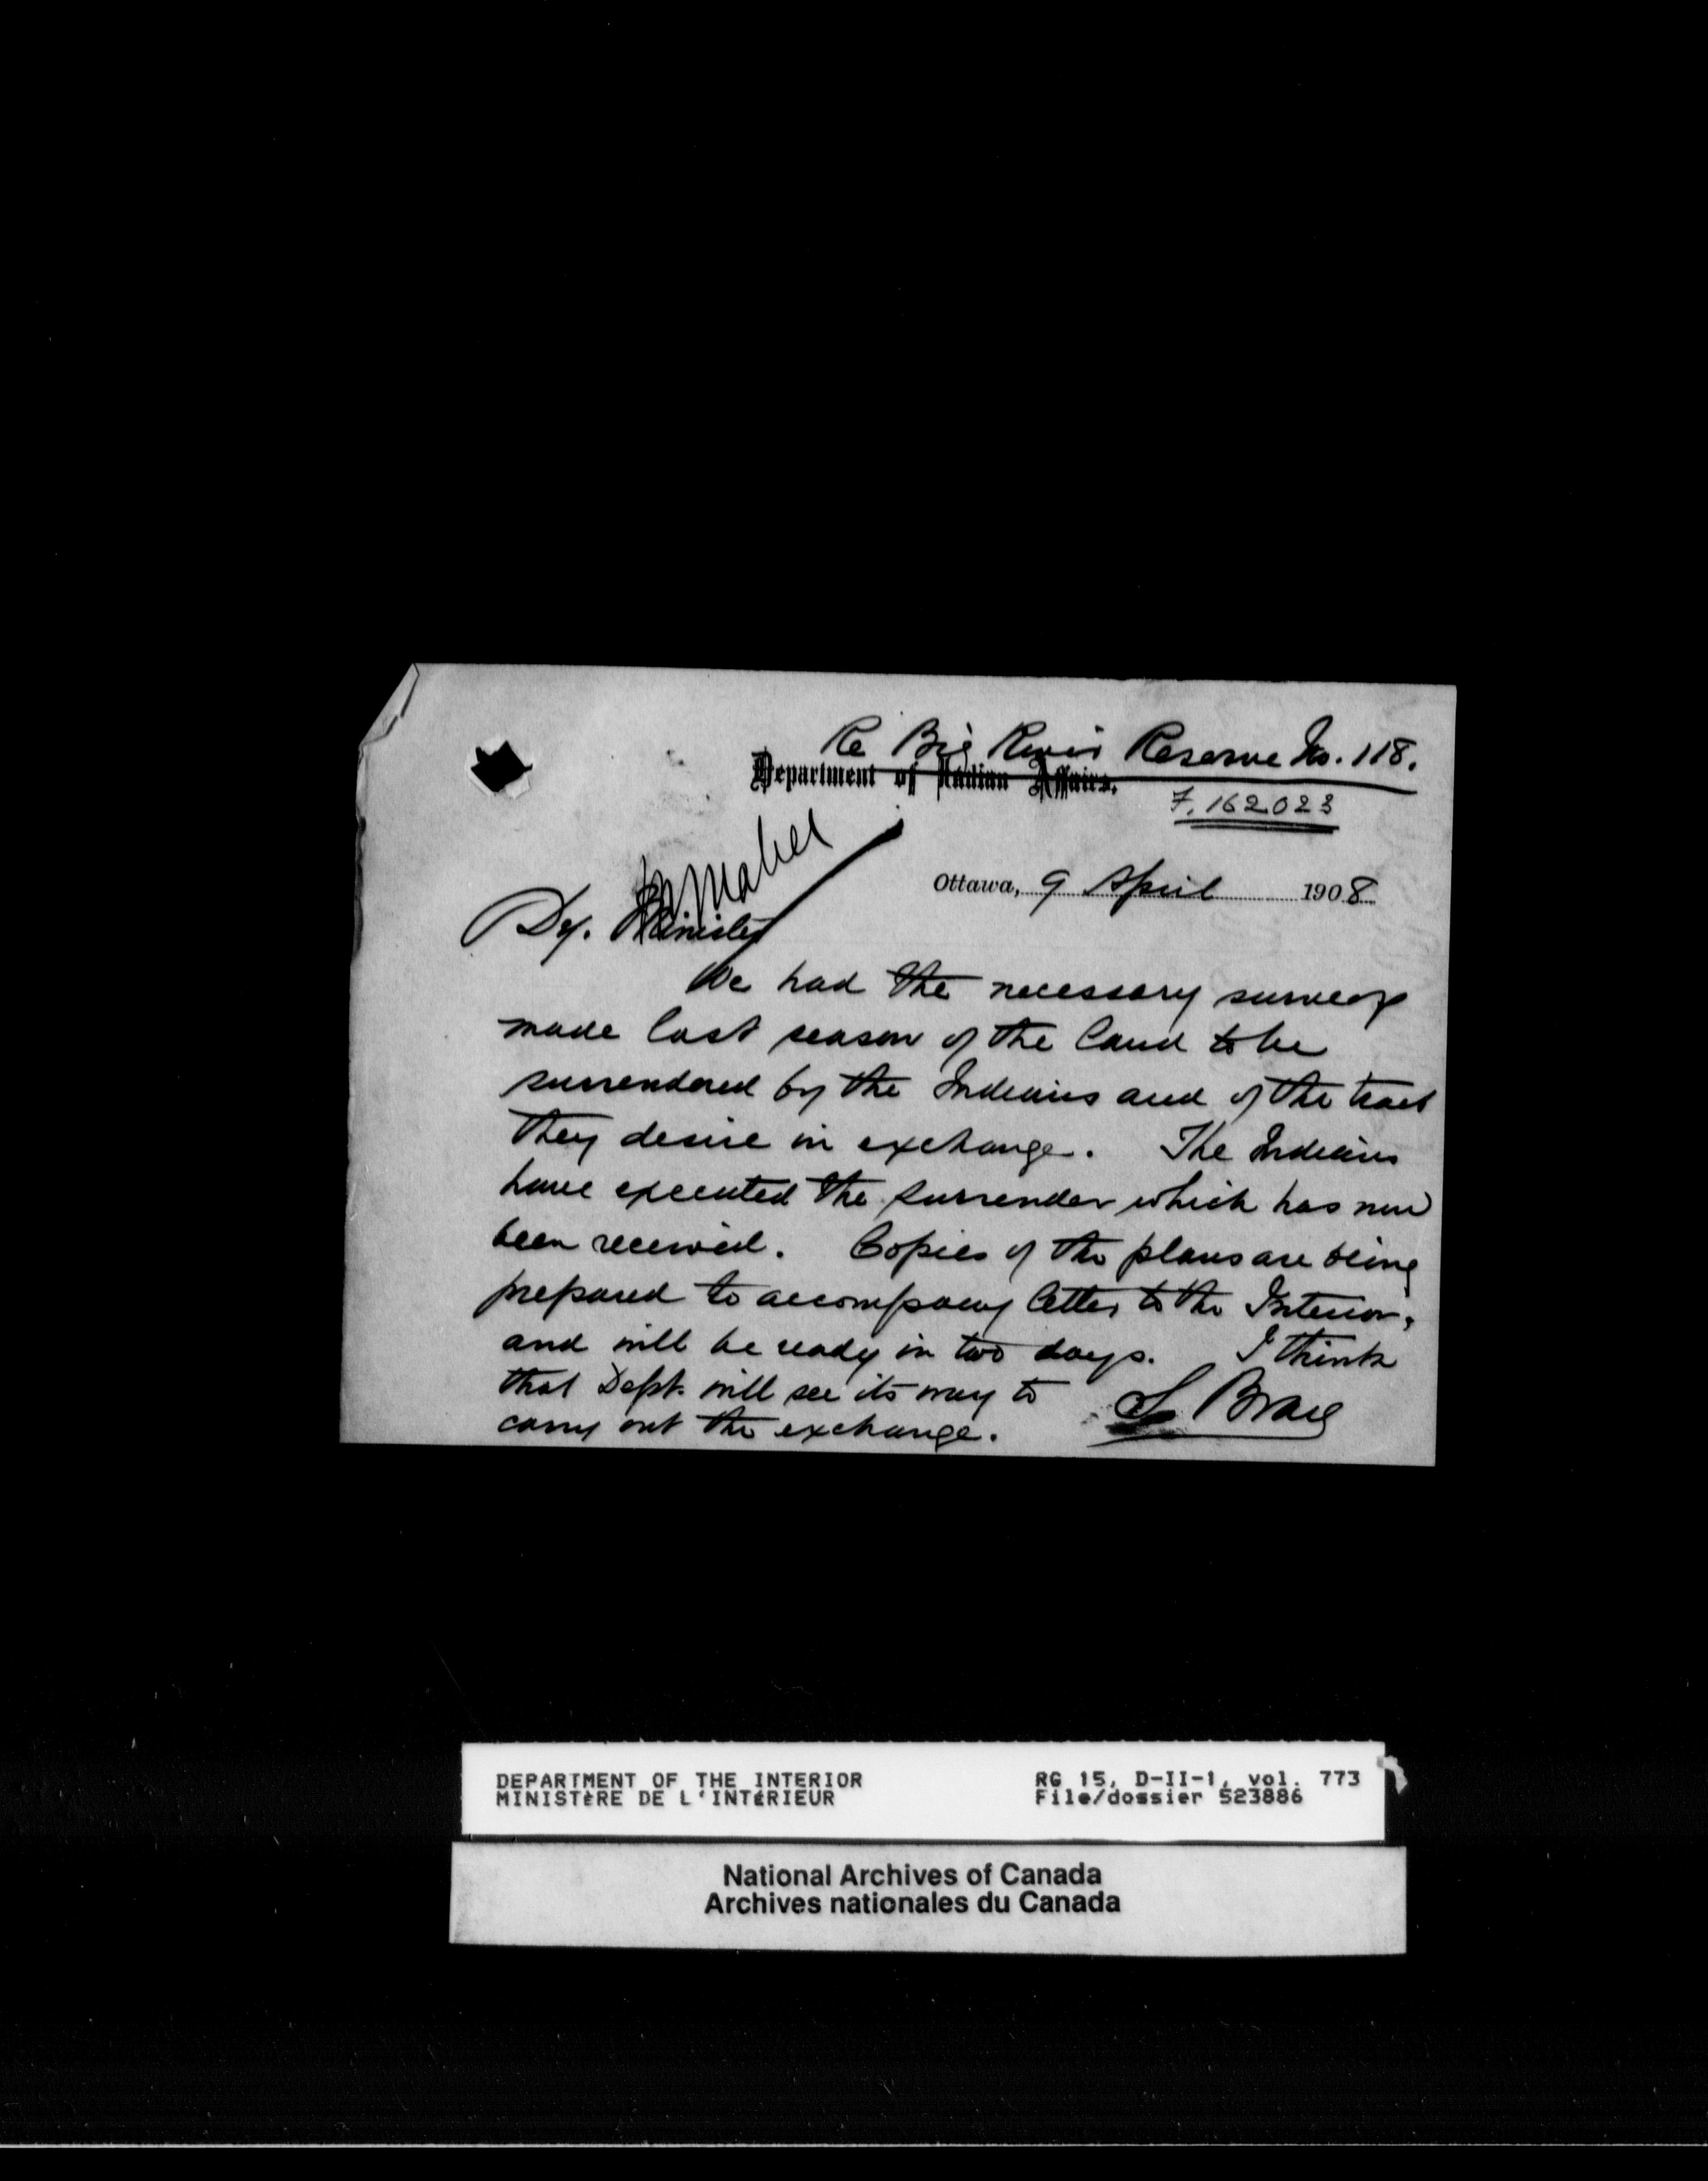 Re Big River Reserve No. 118.
Department of Indian Affairs.
F. 162023
Ottawa, 9 April 1908
Dy. Minister
We had the necessary surveys
made last season of the land to be
surrendered by the Indians and of the tract
they desire in exchange. The Indians
have executed the surrender which has now
been received. Copies of the plans are being
prepared to accompany letter to the Interior,
and will be ready in two days. I think
that Dept. will see its way to
carry out the exchange.
S Bray
DEPARTMENT OF THE INTERIOR
MINISTÈRE DE L'INTÉRIEUR
RG 15, D-II-1, vol. 773
File/dossier 523886
National Archives of Canada
Archives nationales du Canada